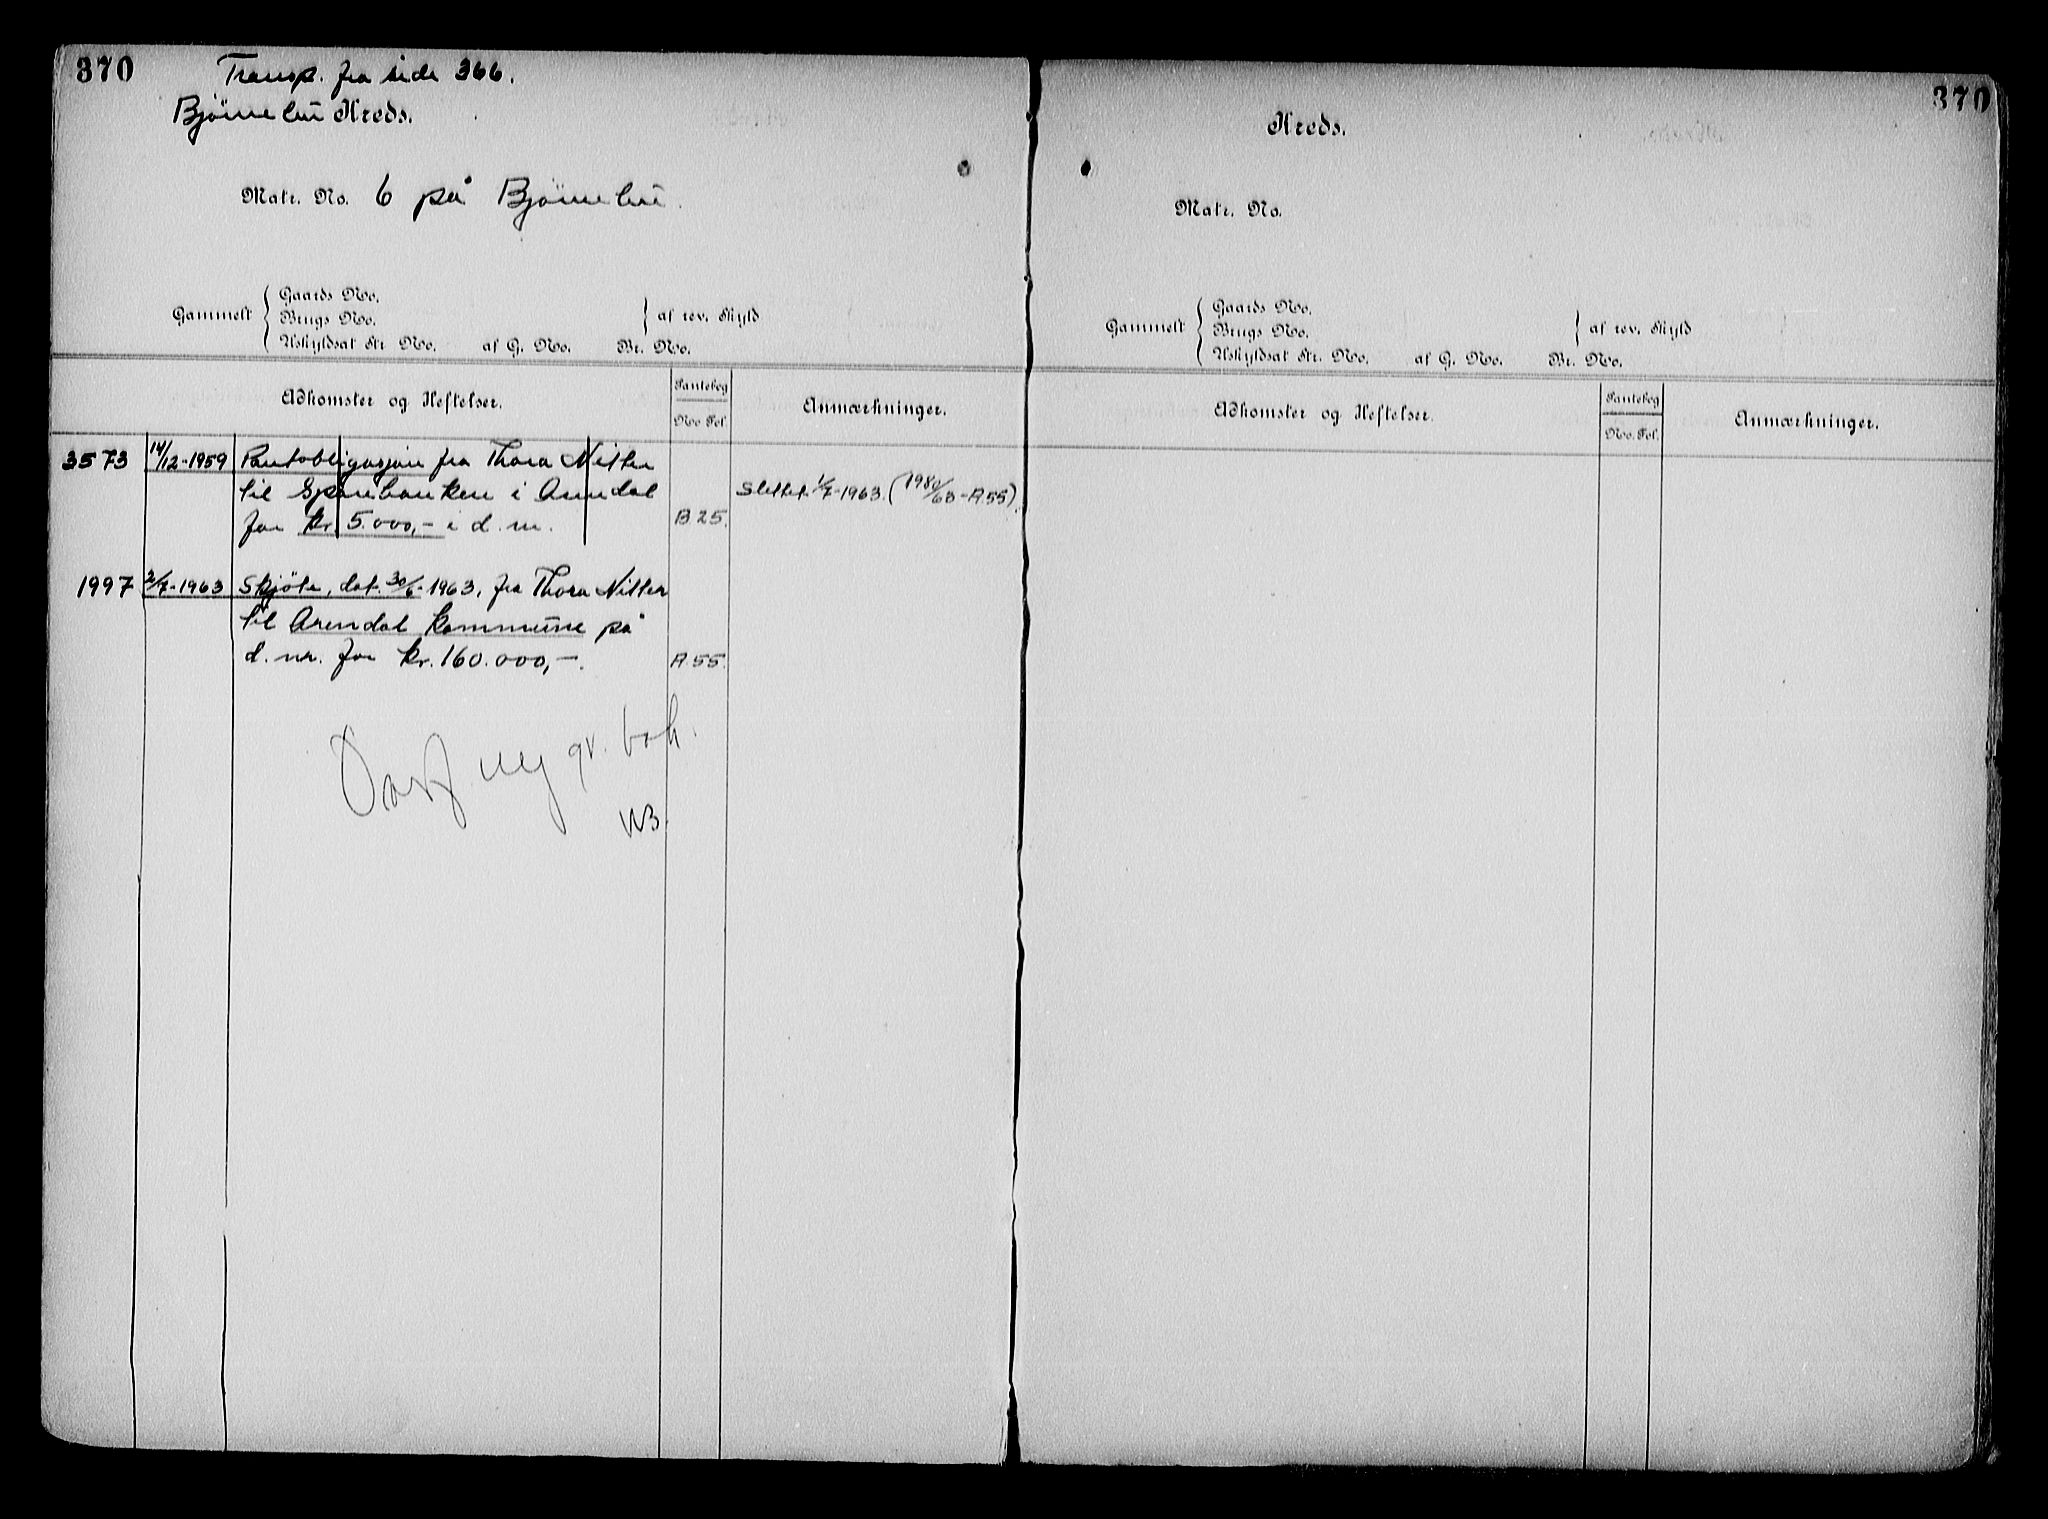 370
Transp. fra side 366.
Kreds.
Matr. No. 6 på
Gammelt
Gaards No.
Brugs No.
Uskyldsat Str. No. af G. No. Br. No.
af rev. Skyld
Adkomster og Heftelser.
Pantebog
No Fol.
Anmærkninger.
3573 14/12-1959 Pantobligasjon fra Thora Nilsen
til Sparebanken i Arendal
for kr. 5.000,- i d. nr. B.25.
Slettet 1/7-1963. (1980/63-A.55).
1997 2/7-1963 Skjöte, dat. 30/6-1963, fra Thora Nilsen
til Arendal kommune på
d. nr. for kr. 160.000,-. A.55.
Overf. ny gr. bok.
370
Kreds.
Matr. No.
Gammelt
Gaards No.
Brugs No.
Uskyldsat Str. No. af G. No. Br. No.
af rev. Skyld
Adkomster og Heftelser.
Pantebog
No. Fol.
Anmærkninger.